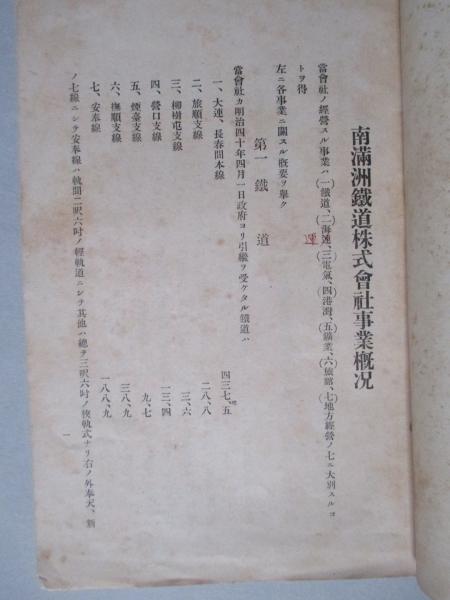 南滿洲鐵道株式會社事業槪况
當會社ノ經營スル事業ハ(一)鐵道、(二)海運、(三)電氣、(四)港灣、(五)鑛業、(六)旅館、(七)地方經營ノ七ニ大別スルコ
トヲ得
運
左ニ各事業ニ關スル槪要ヲ擧ク
第一 鐵道
當會社カ明治四十年四月一日政府ヨリ引繼ヲ受ケタル鐵道ハ
一、大連、長春間本線 四三七、五
二、旅順支線 二八、八
三、柳樹屯支線 三、六
四、營口支線 一三、四
五、煙臺支線 九、七
六、撫順支線 三八、九
七、安奉線 一八八、九
ノ七線ニシテ安奉線ハ軌間二呎六吋ノ輕軌道ニシテ其他ハ總テ三呎六吋ノ狹軌式ナリ右ノ外奉天、新
一